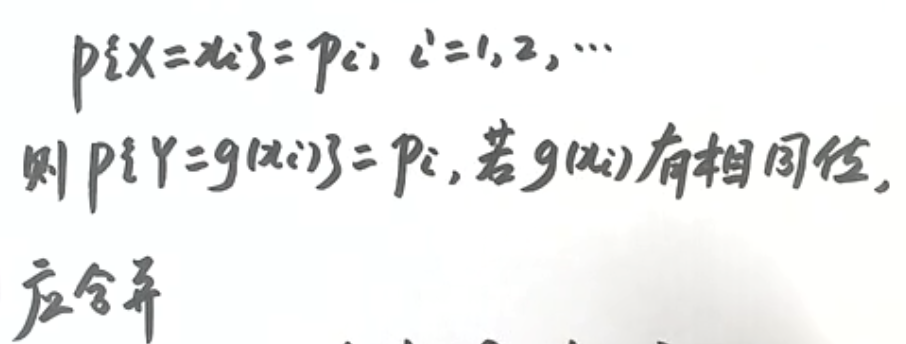 P{X=xi}=pi, i=1,2,…
则 P{Y=g(xi)}=pi, 若 g(xi) 有相同值,
应合并